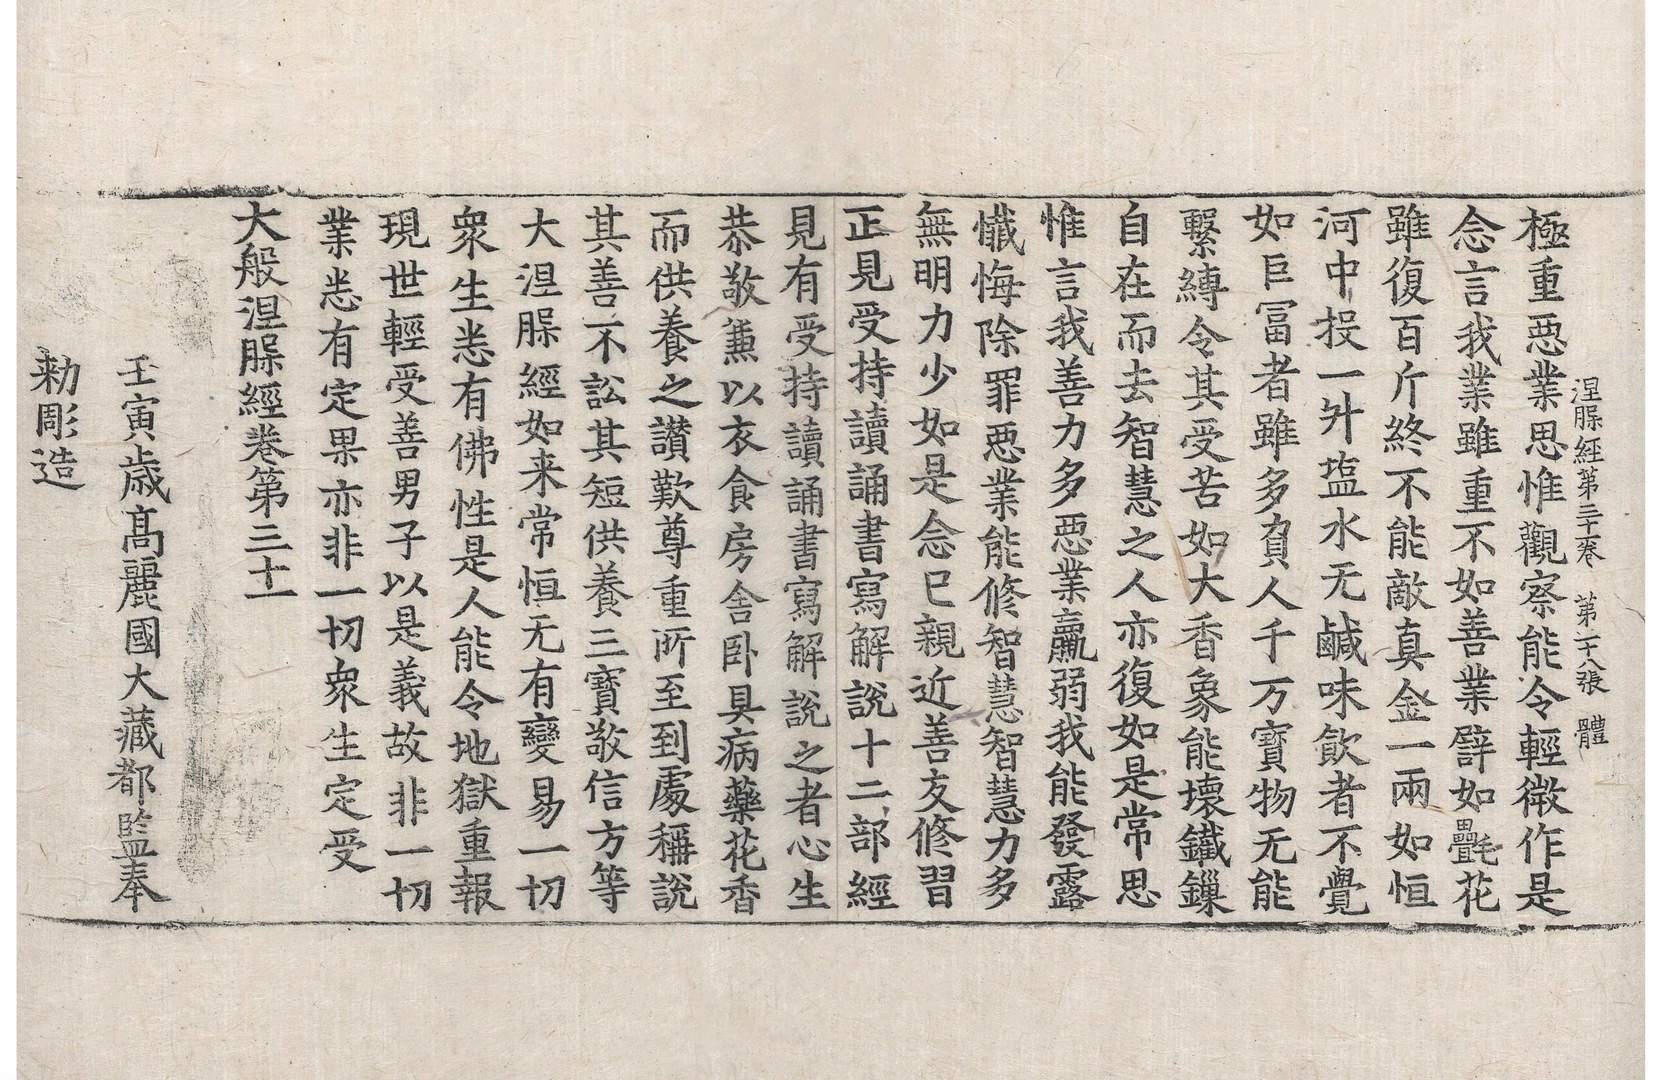 涅槃經第三十一卷 第二十八張 體
極重惡業思惟觀察能令輕微作是
念言我業雖重不如善業譬如㲲花
雖復百斤終不能敵真金一兩如恒
河中投一升塩水无鹹味飲者不覺
如巨富者雖多負人千万寶物无能
繫縛令其受苦如大香象能壞鐵鏁
自在而去智慧之人亦復如是常思
惟言我善力多惡業羸弱我能發露
懺悔除罪惡業能修智慧智慧力多
無明力少如是念已親近善友修習
正見受持讀誦書寫解說十二部經
見有受持讀誦書寫解說之者心生
恭敬兼以衣食房舍卧具病藥花香
而供養之讃歎尊重所至到處稱說
其善不訟其短供養三寶敬信方等
大涅槃經如来常恒无有變易一切
衆生悉有佛性是人能令地獄重報
現世輕受善男子以是義故非一切
業悉有定果亦非一切衆生定受
大般涅槃經卷第三十一
壬寅歲高麗國大藏都監奉
勑彫造